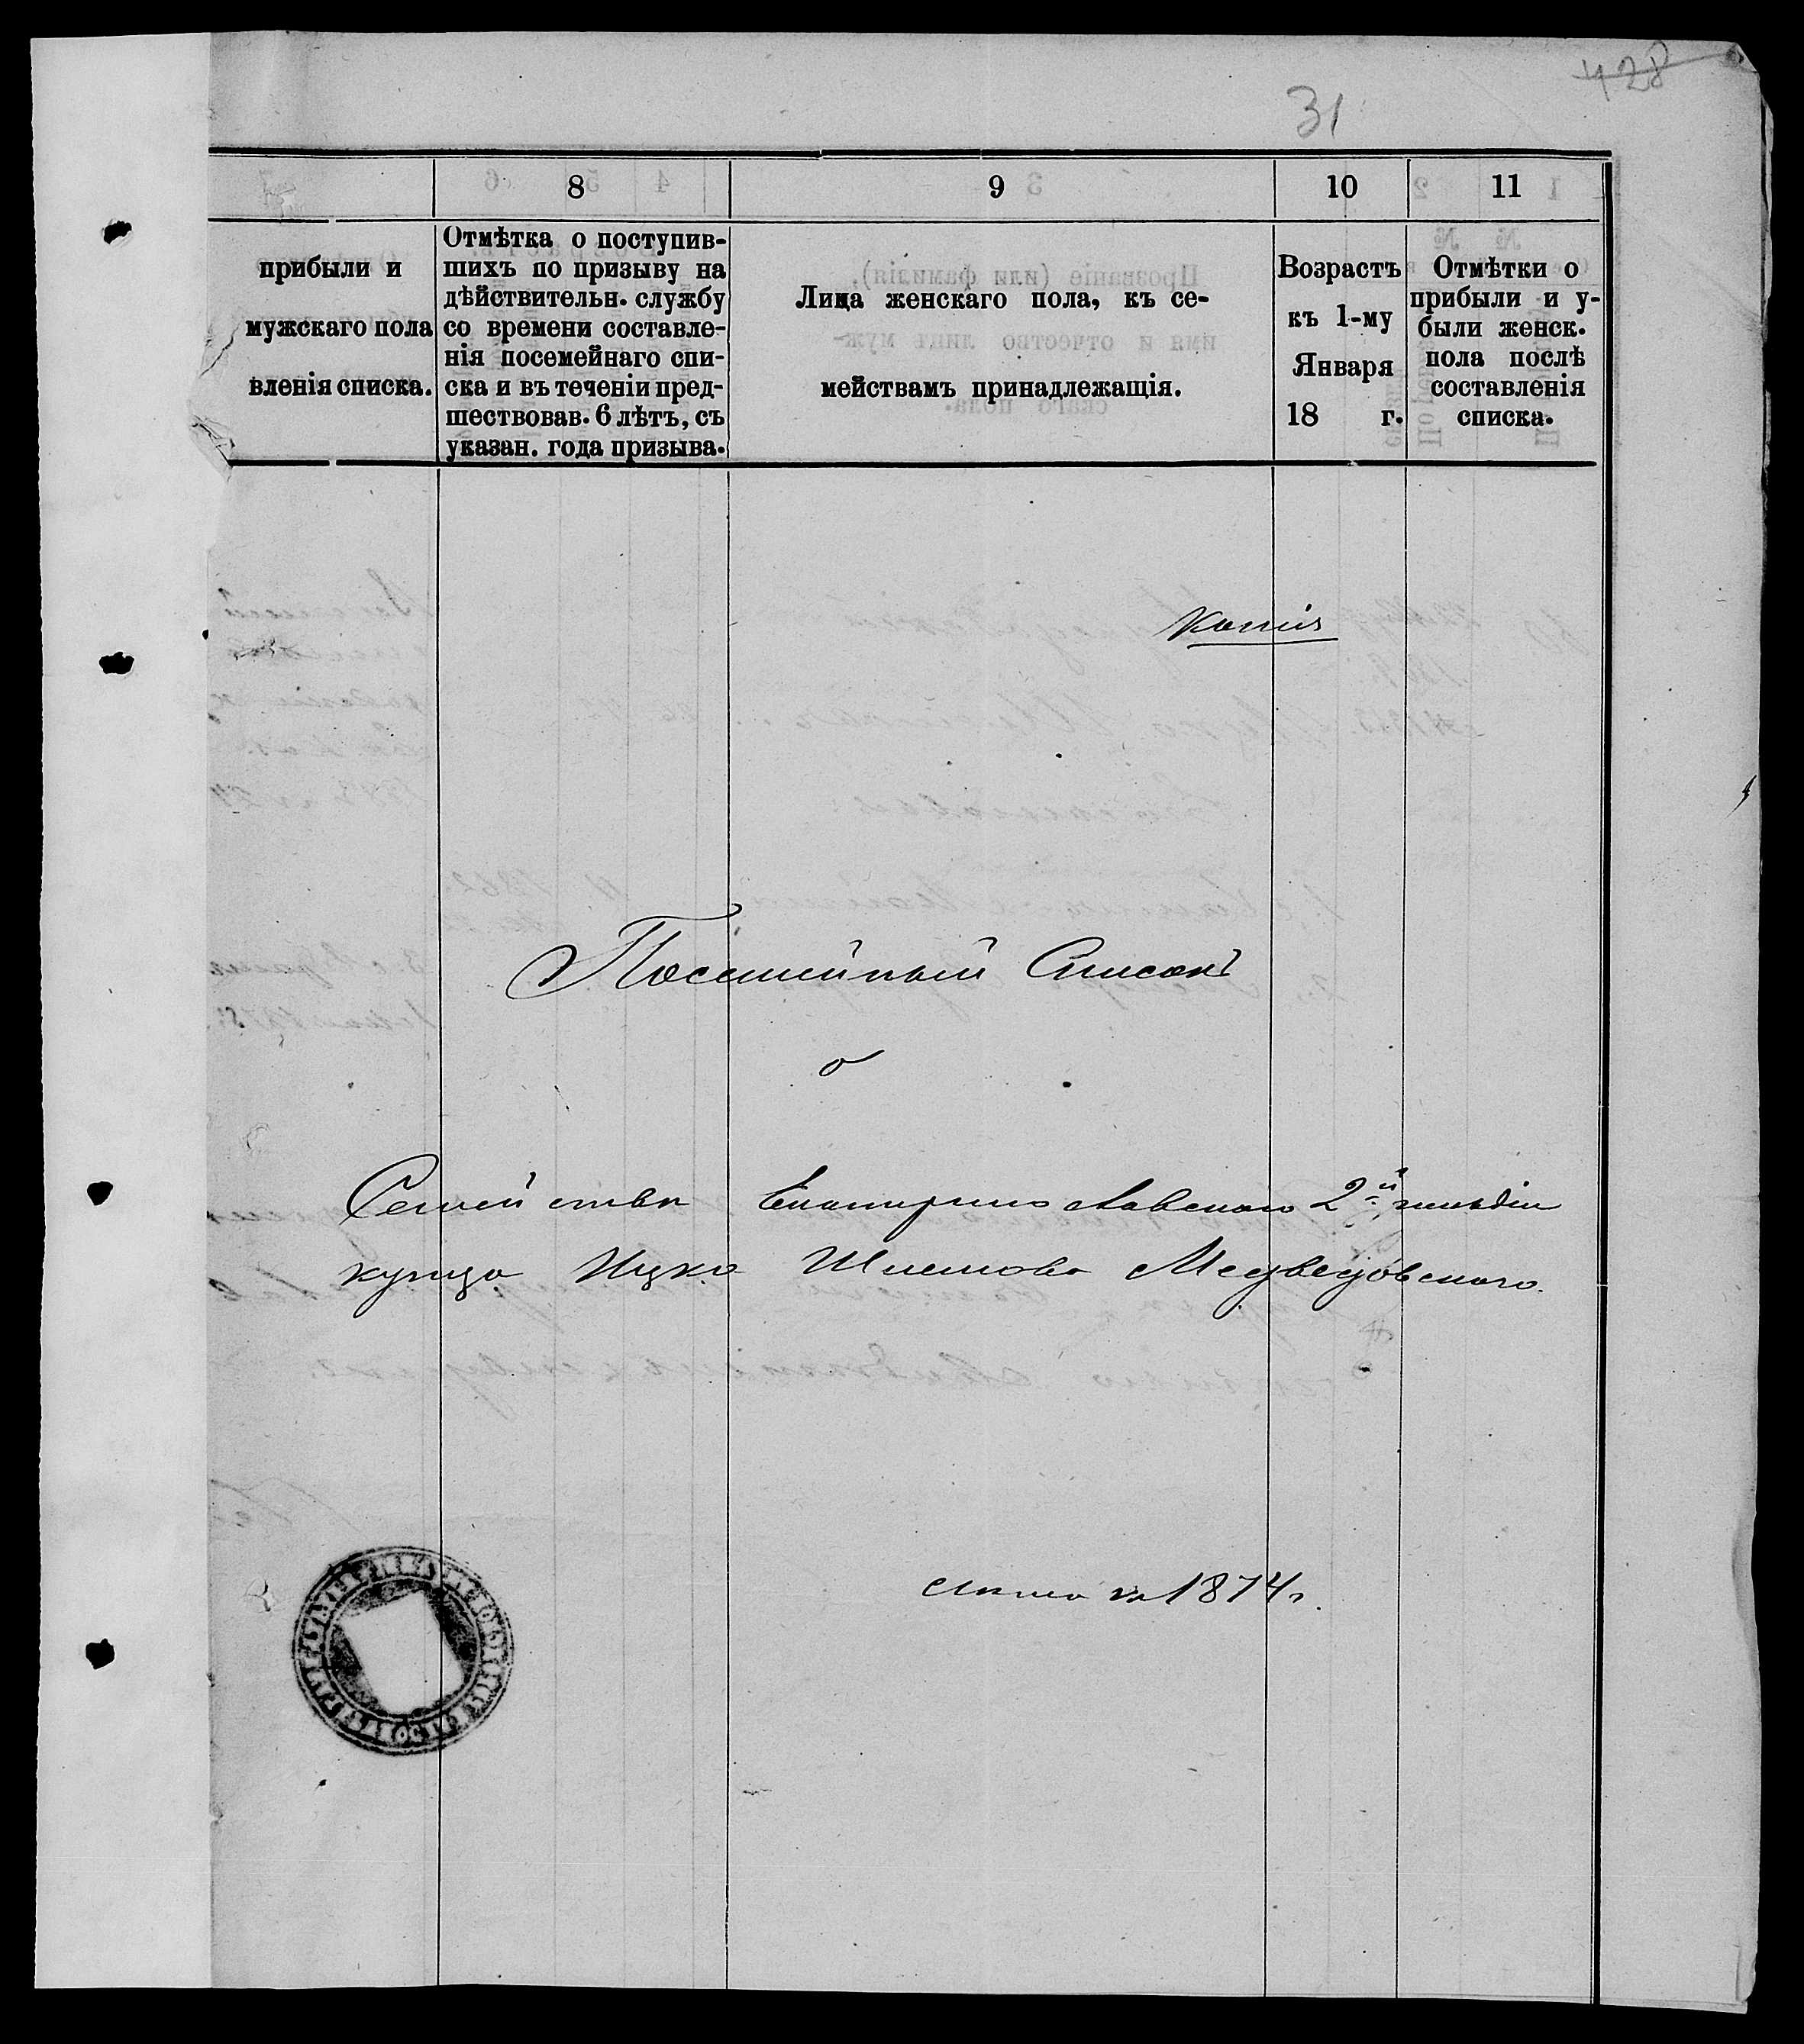 428
31
8 9 10 11
прибыли и
мужскаго пола
вленія списка.
Отмѣтка о поступив-
шихъ по призыву на
дѣйствительн. службу
со времени составле-
нія посемейнаго спи-
ска и въ теченіи пред-
шествовав. 6 лѣтъ, съ
указан. года призыва.
Лица женскаго пола, къ се-
мействамъ принадлежащія.
Возрастъ
къ 1-му
Января
18 г.
Отмѣтки о
прибыли и у-
были женск.
пола послѣ
составленія
списка.
Копія
Посемейный Списокъ
о
Семействѣ Екатеринославскаго 2й гильдіи
купца Ицко Шлемова Медведовскаго.
1874г.